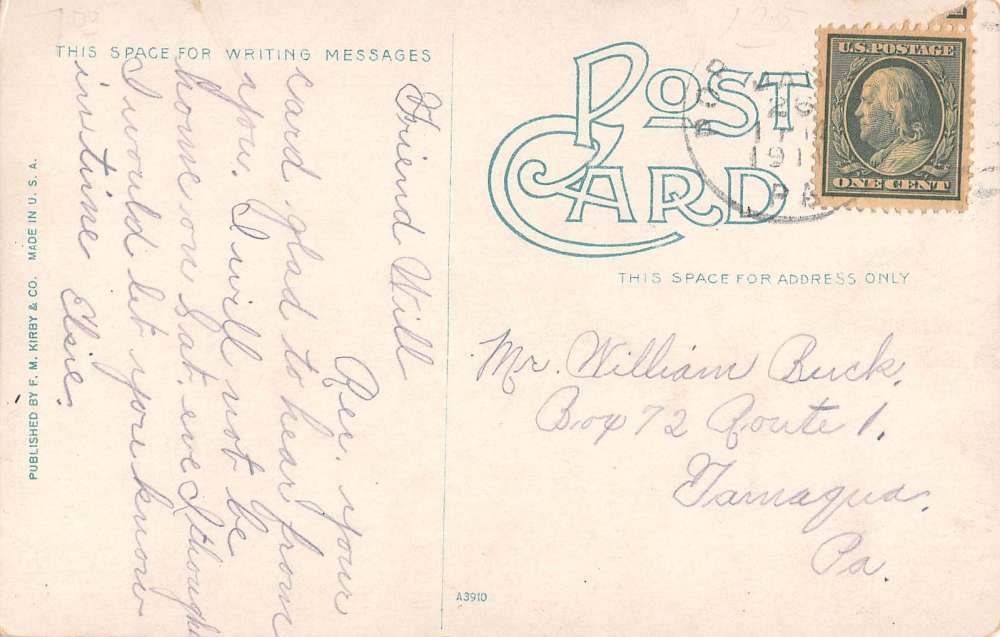 THIS SPACE FOR WRITING MESSAGES
Friend Will
Rec. your
card glad to hear from
you. I will not be
home on Sat. eve I though
I would let you know
in time Elsie.
PUBLISHED BY F. M. KIRBY & CO. MADE IN U. S. A.
POST
CARD
U.S. POSTAGE
ONE CENT
26
191
PA
THIS SPACE FOR ADDRESS ONLY
Mr. William Buck.
Box 72 Route 1.
Tamaqua.
Pa.
A3910